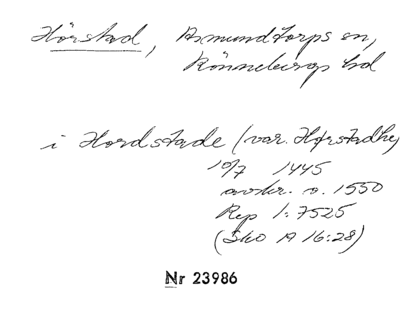 Hörstad, Asmundtorps sn,
Rönnebergs hd
i Hordstade (var. Hørstadhe)
10/7 1445
avskr. o. 1550
Rep 1:7525
(Sko A 16:28)
Nr 23986